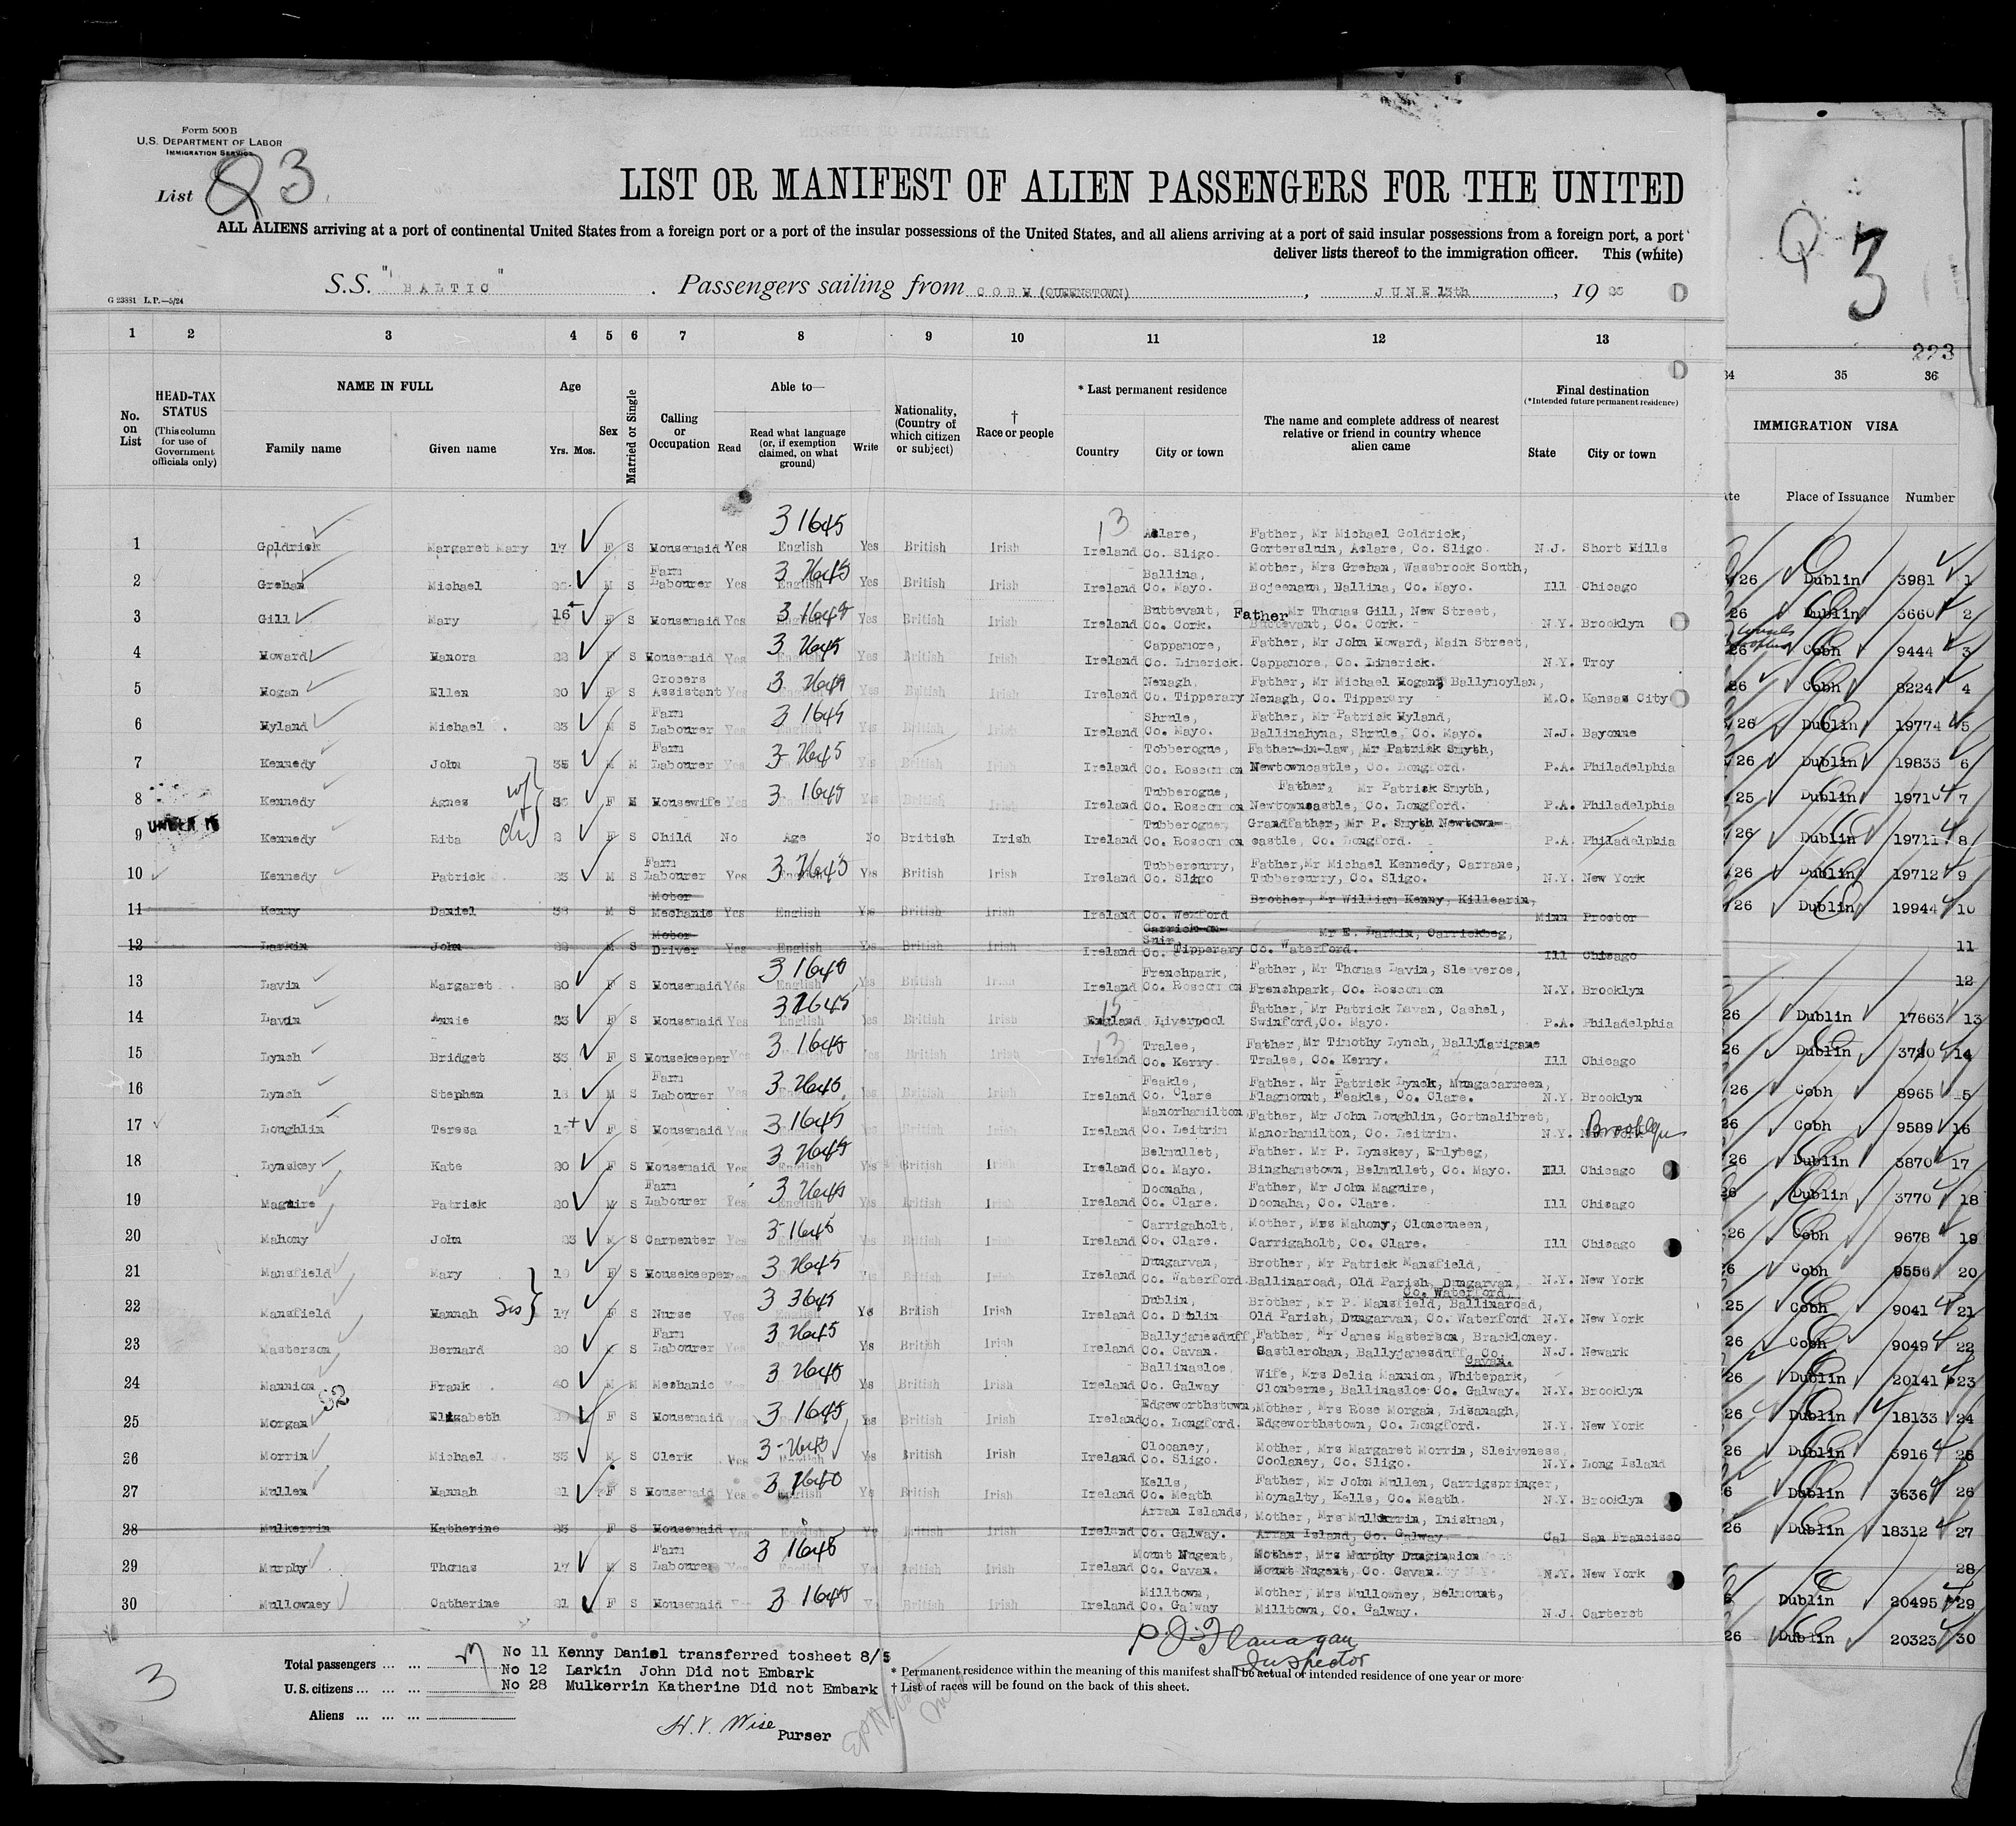 Form 500 B
U.S. DEPARTMENT OF LABOR
IMMIGRATION SERVICE
List 3
LIST OR MANIFEST OF ALIEN PASSENGERS FOR THE UNITED
ALL ALIENS arriving at a port of continental United States from a foreign port or a port of the insular possessions of the United States, and all aliens arriving at a port of said insular possessions from a foreign port, a port
deliver lists thereof to the immigration officer. This (white)
G 23881 L.P.—5/24
S.S. "BALTIC" . Passengers sailing from COBH (QUEENSTOWN) , JUNE 13th , 19
3
223
1 2 3 4 5 6 7 8 9 10 11 12 13
34 35 36
No. on List
HEAD-TAX STATUS
(This column for use of Government officials only)
NAME IN FULL
Family name Given name
Age
Yrs. Mos.
Sex
Married or Single
Calling or Occupation
Able to—
Read
Read what language (or, if exemption claimed, on what ground)
Write
Nationality, (Country of which citizen or subject)
† Race or people
* Last permanent residence
Country City or town
The name and complete address of nearest relative or friend in country whence alien came
Final destination
(*Intended future permanent residence)
State City or town
IMMIGRATION VISA
Place of Issuance Number
1 Goldrick Margaret Mary 17 F S Housemaid Yes English Yes British Irish Ireland Aclare, Co. Sligo. Father, Mr Michael Goldrick, Aclare, Co. Sligo. N.J. Short Hills
2 Grehan Michael M S Farm Labourer Yes English Yes British Irish Ireland Ballina, Co. Mayo. Mother, Mrs Grehan, Wassbrook South, Bojeenaun, Ballina, Co. Mayo. Ill Chicago
3 Gill Mary 16 F S Housemaid Yes English Yes British Irish Ireland Buttevant, Co. Cork. Father Mr Thomas Gill, New Street, Buttevant, Co. Cork. N.Y. Brooklyn
4 Howard Hanora 22 F S Housemaid Yes English Yes British Irish Ireland Cappamore, Co. Limerick. Father, Mr John Howard, Main Street, Cappamore, Co. Limerick. N.Y. Troy
5 Hogan Ellen 20 F S Grocers Assistant Yes English Yes British Irish Ireland Nenagh, Co. Tipperary Father, Mr Michael Hogan, Ballymoylan, Nenagh, Co. Tipperary M.O. Kansas City
6 Hyland Michael 23 M S Farm Labourer Yes English Yes British Irish Ireland Shrule, Co. Mayo. Father, Mr Patrick Hyland, Ballinahyna, Shrule, Co. Mayo. N.J. Bayonne
7 Kennedy John 35 M M Farm Labourer Yes English Yes British Irish Ireland Tobberogue, Co. Roscommon Father-in-law, Mr Patrick Smyth, Newtowncastle, Co. Longford. P.A. Philadelphia
8 Kennedy Agnes F M Housewife Yes Yes British Irish Ireland Tubberogue, Co. Roscommon Father, Mr Patrick Smyth, Newtowncastle, Co. Longford. P.A. Philadelphia
UNDER 16
9 Kennedy Rita 2 F S Child No Age No British Irish Ireland Tubberogue, Co. Roscommon Grandfather, Mr P. Smyth Newtown-castle, Co. Longford. P.A. Philadelphia
10 Kennedy Patrick 23 M S Farm Labourer Yes English Yes British Irish Ireland Tubbercurry, Co. Sligo Father, Mr Michael Kennedy, Carrane, Tubbercurry, Co. Sligo. N.Y. New York
11 Kenny Daniel 38 M S Motor Mechanic Yes English Yes British Irish Ireland Co. Wexford Brother, Mr William Kenny, Killearin, Minn Proctor
12 Larkin John 22 M S Motor Driver Yes English Yes British Irish Ireland Carrick-on-Suir, Co. Tipperary Mr E. Larkin, Carrickbeg, Co. Waterford. Ill Chicago
13 Lavin Margaret 20 F S Housemaid Yes English Yes British Irish Ireland Frenchpark, Co. Roscommon Father, Mr Thomas Lavin, Sleeveroe, Frenchpark, Co. Roscommon N.Y. Brooklyn
14 Lavin Annie 23 F S Housemaid Yes English Yes British Irish England Liverpool Father, Mr Patrick Lavan, Cashel, Swinford, Co. Mayo. P.A. Philadelphia
15 Lynch Bridget 33 F S Housekeeper Yes English Yes British Irish Ireland Tralee, Co. Kerry Father, Mr Timothy Lynch, Ballylarigane Tralee, Co. Kerry. Ill Chicago
16 Lynch Stephen 18 M S Farm Labourer Yes English Yes British Irish Ireland Feakle, Co. Clare Father. Mr Patrick Lynch, Mungacarreen, Flagmount, Feakle, Co. Clare. N.Y. Brooklyn
17 Loughlin Teresa F S Housemaid Yes English Yes British Irish Ireland Manorhamilton Co. Leitrim Father, Mr John Loughlin, Gortnalibret, Manorhamilton, Co. Leitrim. N.Y. Brooklyn
18 Lynskey Kate 20 F S Housemaid Yes English Yes British Irish Ireland Belmullet, Co. Mayo. Father. Mr P. Lynskey, Emlybeg, Binghamstown, Belmullet, Co. Mayo. Ill Chicago
19 Maguire Patrick 20 M S Farm Labourer Yes English Yes British Irish Ireland Doonaha, Co. Clare. Father, Mr John Maguire, Doonaha, Co. Clare. Ill Chicago
20 Mahony John 23 M S Carpenter Yes English Yes British Irish Ireland Carrigaholt, Co. Clare. Mother, Mrs Mahony, Clonerneen, Carrigaholt, Co. Clare. Ill Chicago
21 Mansfield Mary 19 F S Housekeeper Yes English Yes British Irish Ireland Dungarvan, Co. Waterford. Brother, Mr Patrick Mansfield, Ballinaroad, Old Parish, Dungarvan, Co. Waterford. N.Y. New York
22 Mansfield Hannah Sis 17 F S Nurse Yes English Yes British Irish Ireland Dublin, Co. Dublin Brother, Mr P. Mansfield, Ballinaroad, Old Parish, Dungarvan, Co. Waterford N.Y. New York
23 Masterson Bernard 20 M S Farm Labourer Yes English Yes British Irish Ireland Ballyjamesduff, Co. Cavan. Father, Mr James Masterson, Brackloney. Castlerohan, Ballyjamesduff, Co. Cavan. N.J. Newark
24 Mannion Frank 40 M M Mechanic Yes English Yes British Irish Ireland Ballinasloe, Co. Galway Wife, Mrs Delia Mannion, Whitepark, Clonberne, Ballinasloe Co. Galway. N.Y. Brooklyn
25 Morgan Elizabeth F S Housemaid Yes English Yes British Irish Ireland Edgeworthstown, Co. Longford. Mother, Mrs Rose Morgan, Lisanagh, Edgeworthstown, Co. Longford. N.Y. New York
26 Morrin Michael 33 M S Clerk Yes English Yes British Irish Ireland Clooaney, Co. Sligo. Mother, Mrs Margaret Morrin, Sleiveness, Coolaney, Co. Sligo. N.Y. Long Island
27 Mullen Hannah 21 F S Housemaid Yes English Yes British Irish Ireland Kells, Co. Meath Father, Mr John Mullen, Carrigspringer, Moynalty, Kells, Co. Meath. N.Y. Brooklyn
28 Mulkerrin Katherine 23 F S Housemaid Yes English Yes British Irish Ireland Arran Islands, Co. Galway. Mother, Mrs Mulkerrin, Inishman, Arran Island, Co. Galway Cal San Francisco
29 Murphy Thomas 17 M S Farm Labourer Yes English Yes British Irish Ireland Mount Nugent, Co. Cavan. Mother, Mrs Murphy Mount Nugent, Co. Cavan N.Y. New York
30 Mullowney Catherine 21 F S Housemaid British Irish Ireland Milltown, Co. Galway Mother, Mrs Mullowney, Belmount, Milltown, Co. Galway. N.J. Carteret
26 Dublin 3981 1
26 Dublin 3660 2
26 Cobh 9444 3
26 Cobh 8224 4
26 Dublin 19774 5
26 Dublin 19833 6
25 Dublin 19710 7
26 Dublin 19711 8
26 Dublin 19712 9
26 Dublin 19944 10
11
12
26 Dublin 17663 13
26 Dublin 3780 14
26 Cobh 8965 15
26 Cobh 9589 16
26 Dublin 3870 17
26 Dublin 3770 18
26 Cobh 9678 19
26 Cobh 9556 20
25 Cobh 9041 21
26 Cobh 9049 22
26 Dublin 20141 23
26 Dublin 18133 24
26 Dublin 3916 25
26 Dublin 3636 26
26 Dublin 18312 27
28
26 Dublin 20495 29
26 Dublin 20323 30
P. J. Flanagan
Inspector
Total passengers ... ...
U.S. citizens ... ... ...
Aliens ... ... ...
3
No 11 Kenny Daniel transferred tosheet 8/5
No 12 Larkin John Did not Embark
No 28 Mulkerrin Katherine Did not Embark
H. V. Wise
Purser
* Permanent residence within the meaning of this manifest shall be actual or intended residence of one year or more
† List of races will be found on the back of this sheet.